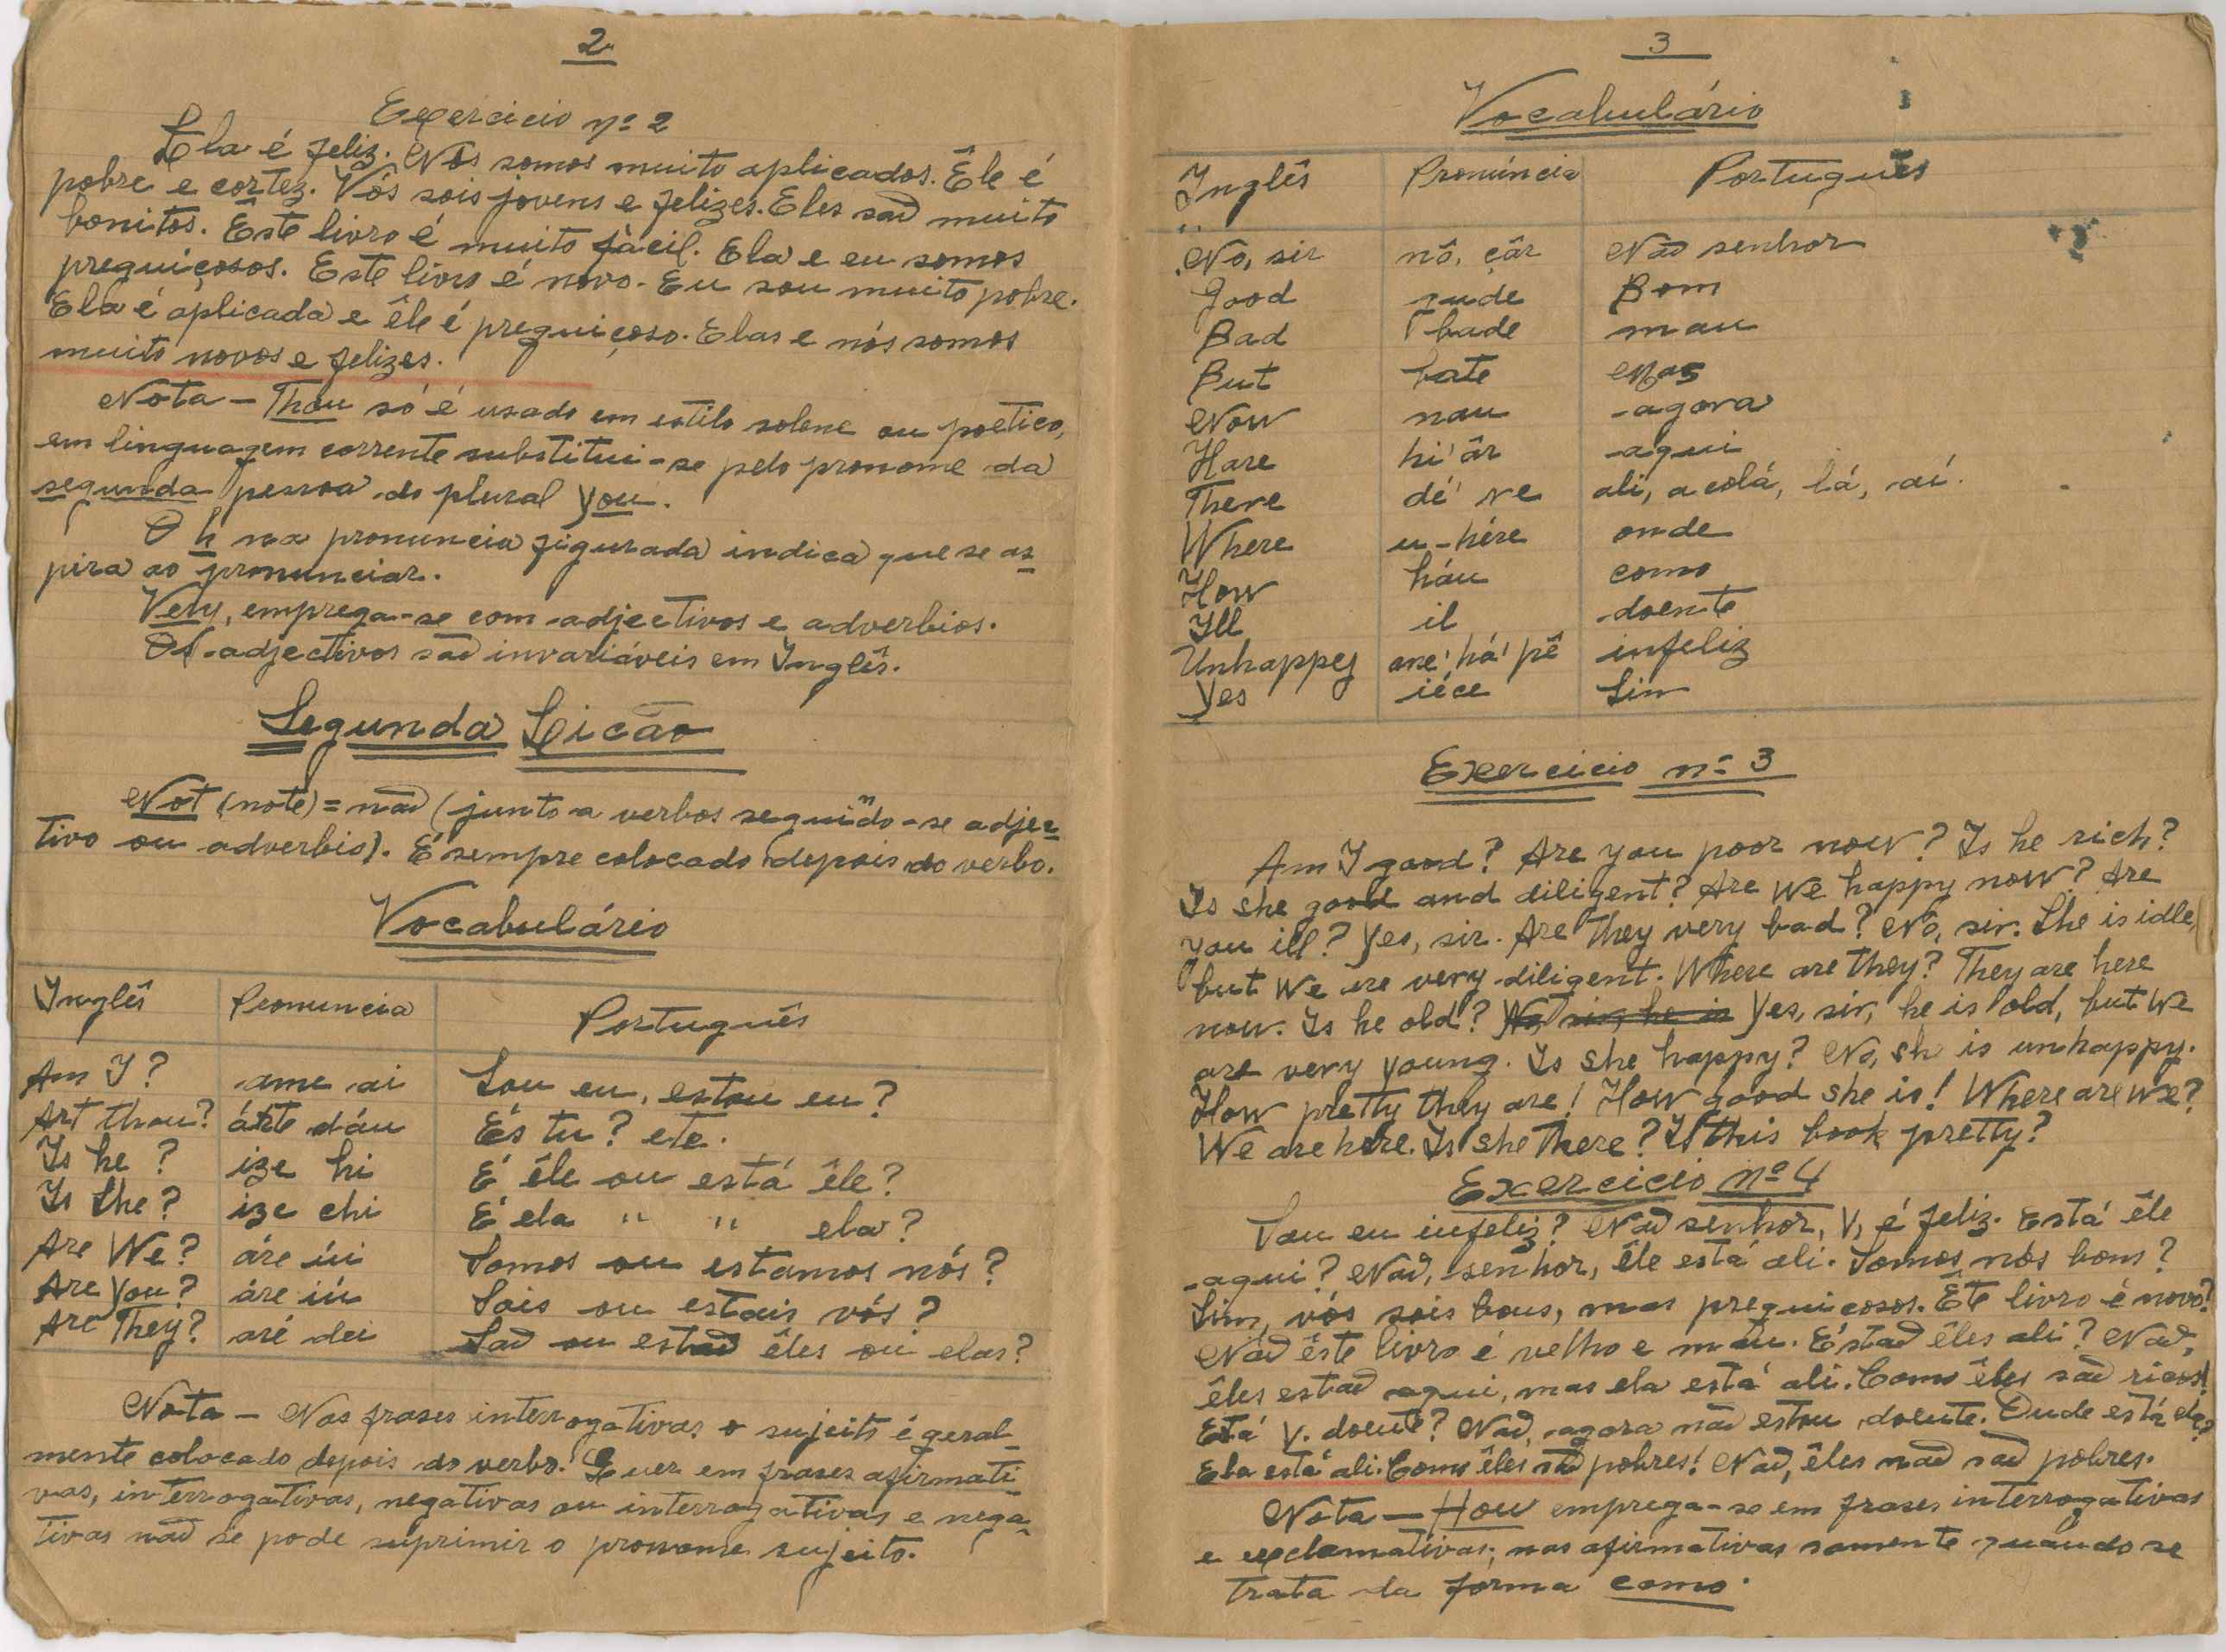 2
Exercicio nº 2
Ela é feliz. Nós somos muito aplicados. Êle é
pobre e cortez. Vós sois jovens e felizes. Eles são muito
bonitos. Êste livro é muito fàcil. Ela e eu somos
preguiçosos. Este livro é novo. Eu sou muito pobre.
Ela é aplicada e êle é preguiçoso. Elas e nós somos
muito novos e felizes.
Nota — Thou só é usado em estilo solene ou poetico,
em linguagem corrente substitui-se pelo pronome da
segunda pessoa do plural you.
O h na pronuncia figurada indica que se as-
pira ao pronunciar.
Very, emprega-se com adjectivos e adverbios.
Os adjectivos são invariáveis em Inglês.
Segunda Licão
Not (note) = não (junto a verbos seguindo-se adjec-
tivo ou adverbio). É sempre colocado depois do verbo.
Vocabulário
Inglês Pronuncia Português
Am I? ame ai Sou eu, estou eu?
Art thou? árte dáu És tu? etc.
Is he? ize hi É êle ou está êle?
Is She? ize chi É ela " " ela?
Are We? áre úi Somos ou estamos nós?
Are you? áre iú Sois ou estais vós?
Are They? aré dei São ou estão êles ou elas?
Nota — Nas frases interrogativas o sujeito é geral-
mente colocado depois do verbo. Quer em frases afirmati-
vas, interrogativas, negativas ou interrogativas e nega-
tivas não se pode suprimir o pronome sujeito.
3
Vocabulário
Inglês Pronúncia Português
No, sir nô, çâr Não senhor
Good gude Bom
Bad bade mau
But bate Mas
Now nau agora
Hare hi'âr aqui
There dé're ali, acolá, lá, aí.
Where u-hére onde
How háu como
Ill il doente
Unhappy ane'há'pê infeliz
Yes iéce Sim
Exercicio nº 3
Am I good? Are you poor now? Is he rich?
Is she good and diligent? Are we happy now? Are
you ill? Yes, sir. Are they very bad? No, sir. She is idle,
but we are very diligent. Where are they? They are here
now. Is he old? No, sir, he is Yes, sir, he is old, but we
are very young. Is she happy? No, sh is unhappy.
How pretty they are! How good she is! Where are we?
We are here. Is she there? Is this book pretty?
Exercicio nº 4
Sou eu infeliz? Não senhor, V, é feliz. Está êle
aqui? Não, senhor, êle está ali. Somos nós bons?
Sim, vós sois bons, mas preguiçosos. Êste livro é novo?
Não êste livro é velho e mau. Estão êles ali? Não,
êles estão aqui, mas ela está ali. Como êles são ricos!
Está V. doente? Não, agora não estou doente. Onde está ela?
Ela está ali. Como êles são pobres! Não, êles não são pobres.
Nota — How emprega-se em frases interrogativas
e exclamativas; nas afirmativas somente quando se
trata da forma como.